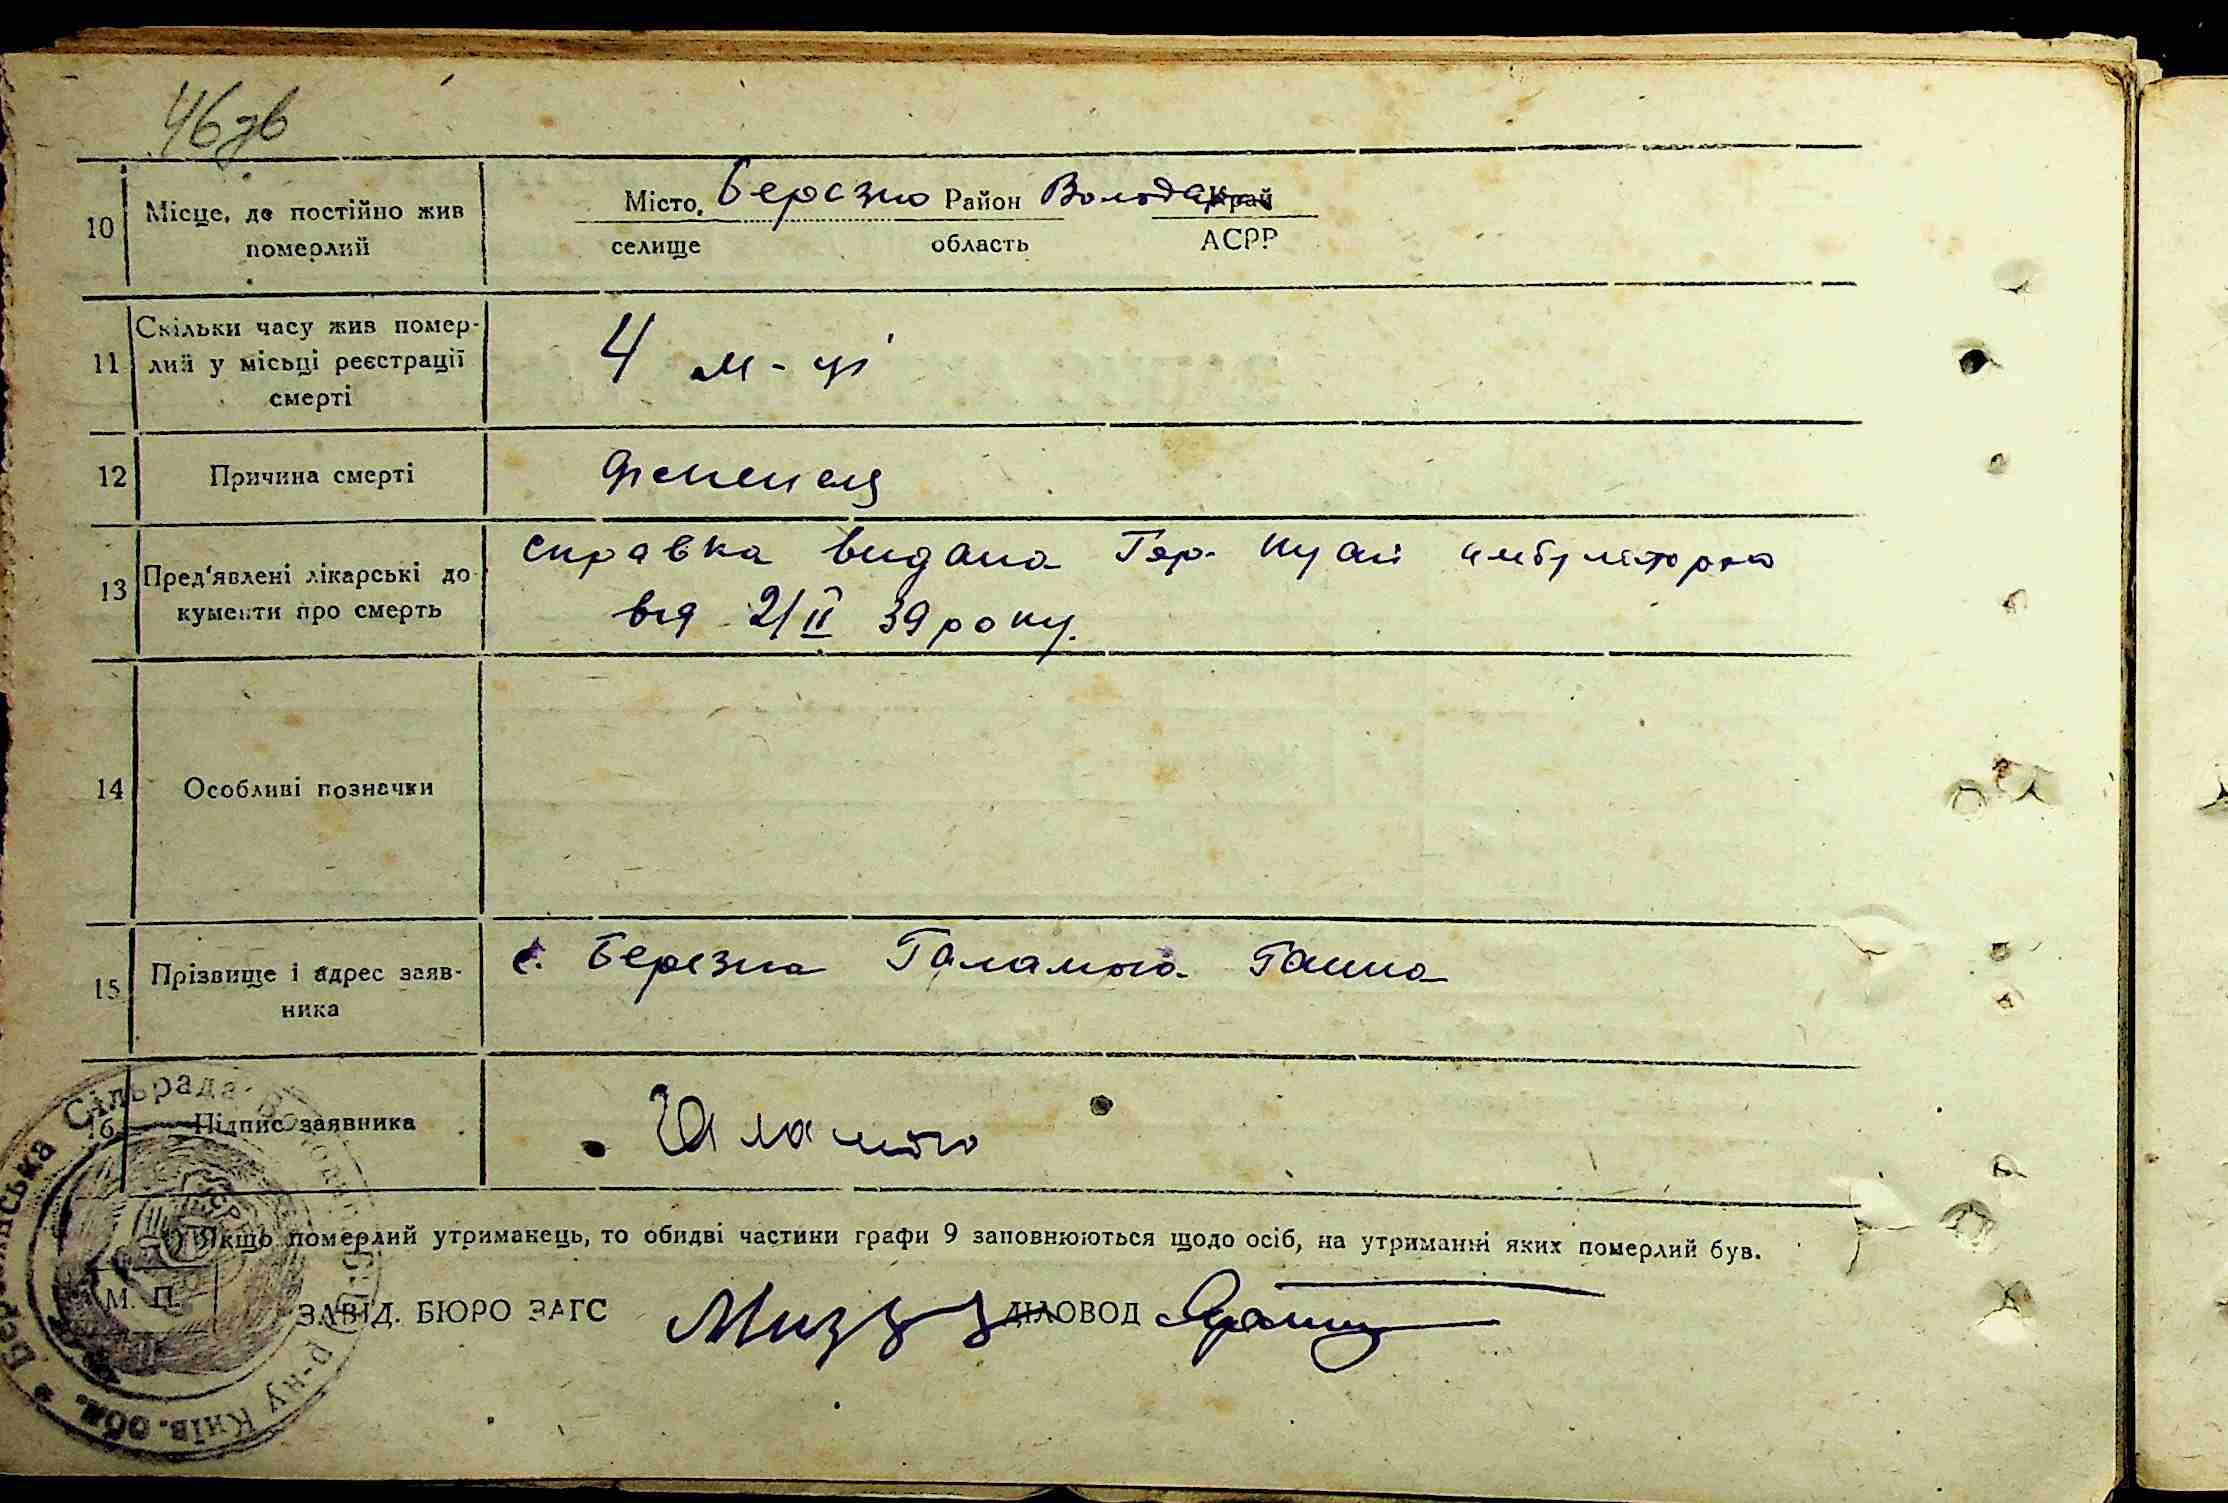 46зв
10 Місце, де постійно жив померлий
Місто, Березно Район Володар Край
селище область АСРР
11 Скільки часу жив помер-
лий у місьці реєстрації
смерті
4 м-ці
12 Причина смерті
13 Пред'явлені лікарські до
кументи про смерть
справка видана амбулаторією
від 2/II 39 року.
14 Особливі позначки
15 Прізвище і адрес заяв-
ника
с. Березна Ганна
16 Підпис заявника
Якщо померлий утриманець, то обидві частини графи 9 заповнюються щодо осіб, на утриманні яких померлий був.
М. П.
ЗАВІД. БЮРО ЗАГС ДІЛОВОД
Сільрада р-ну Київ. обл.